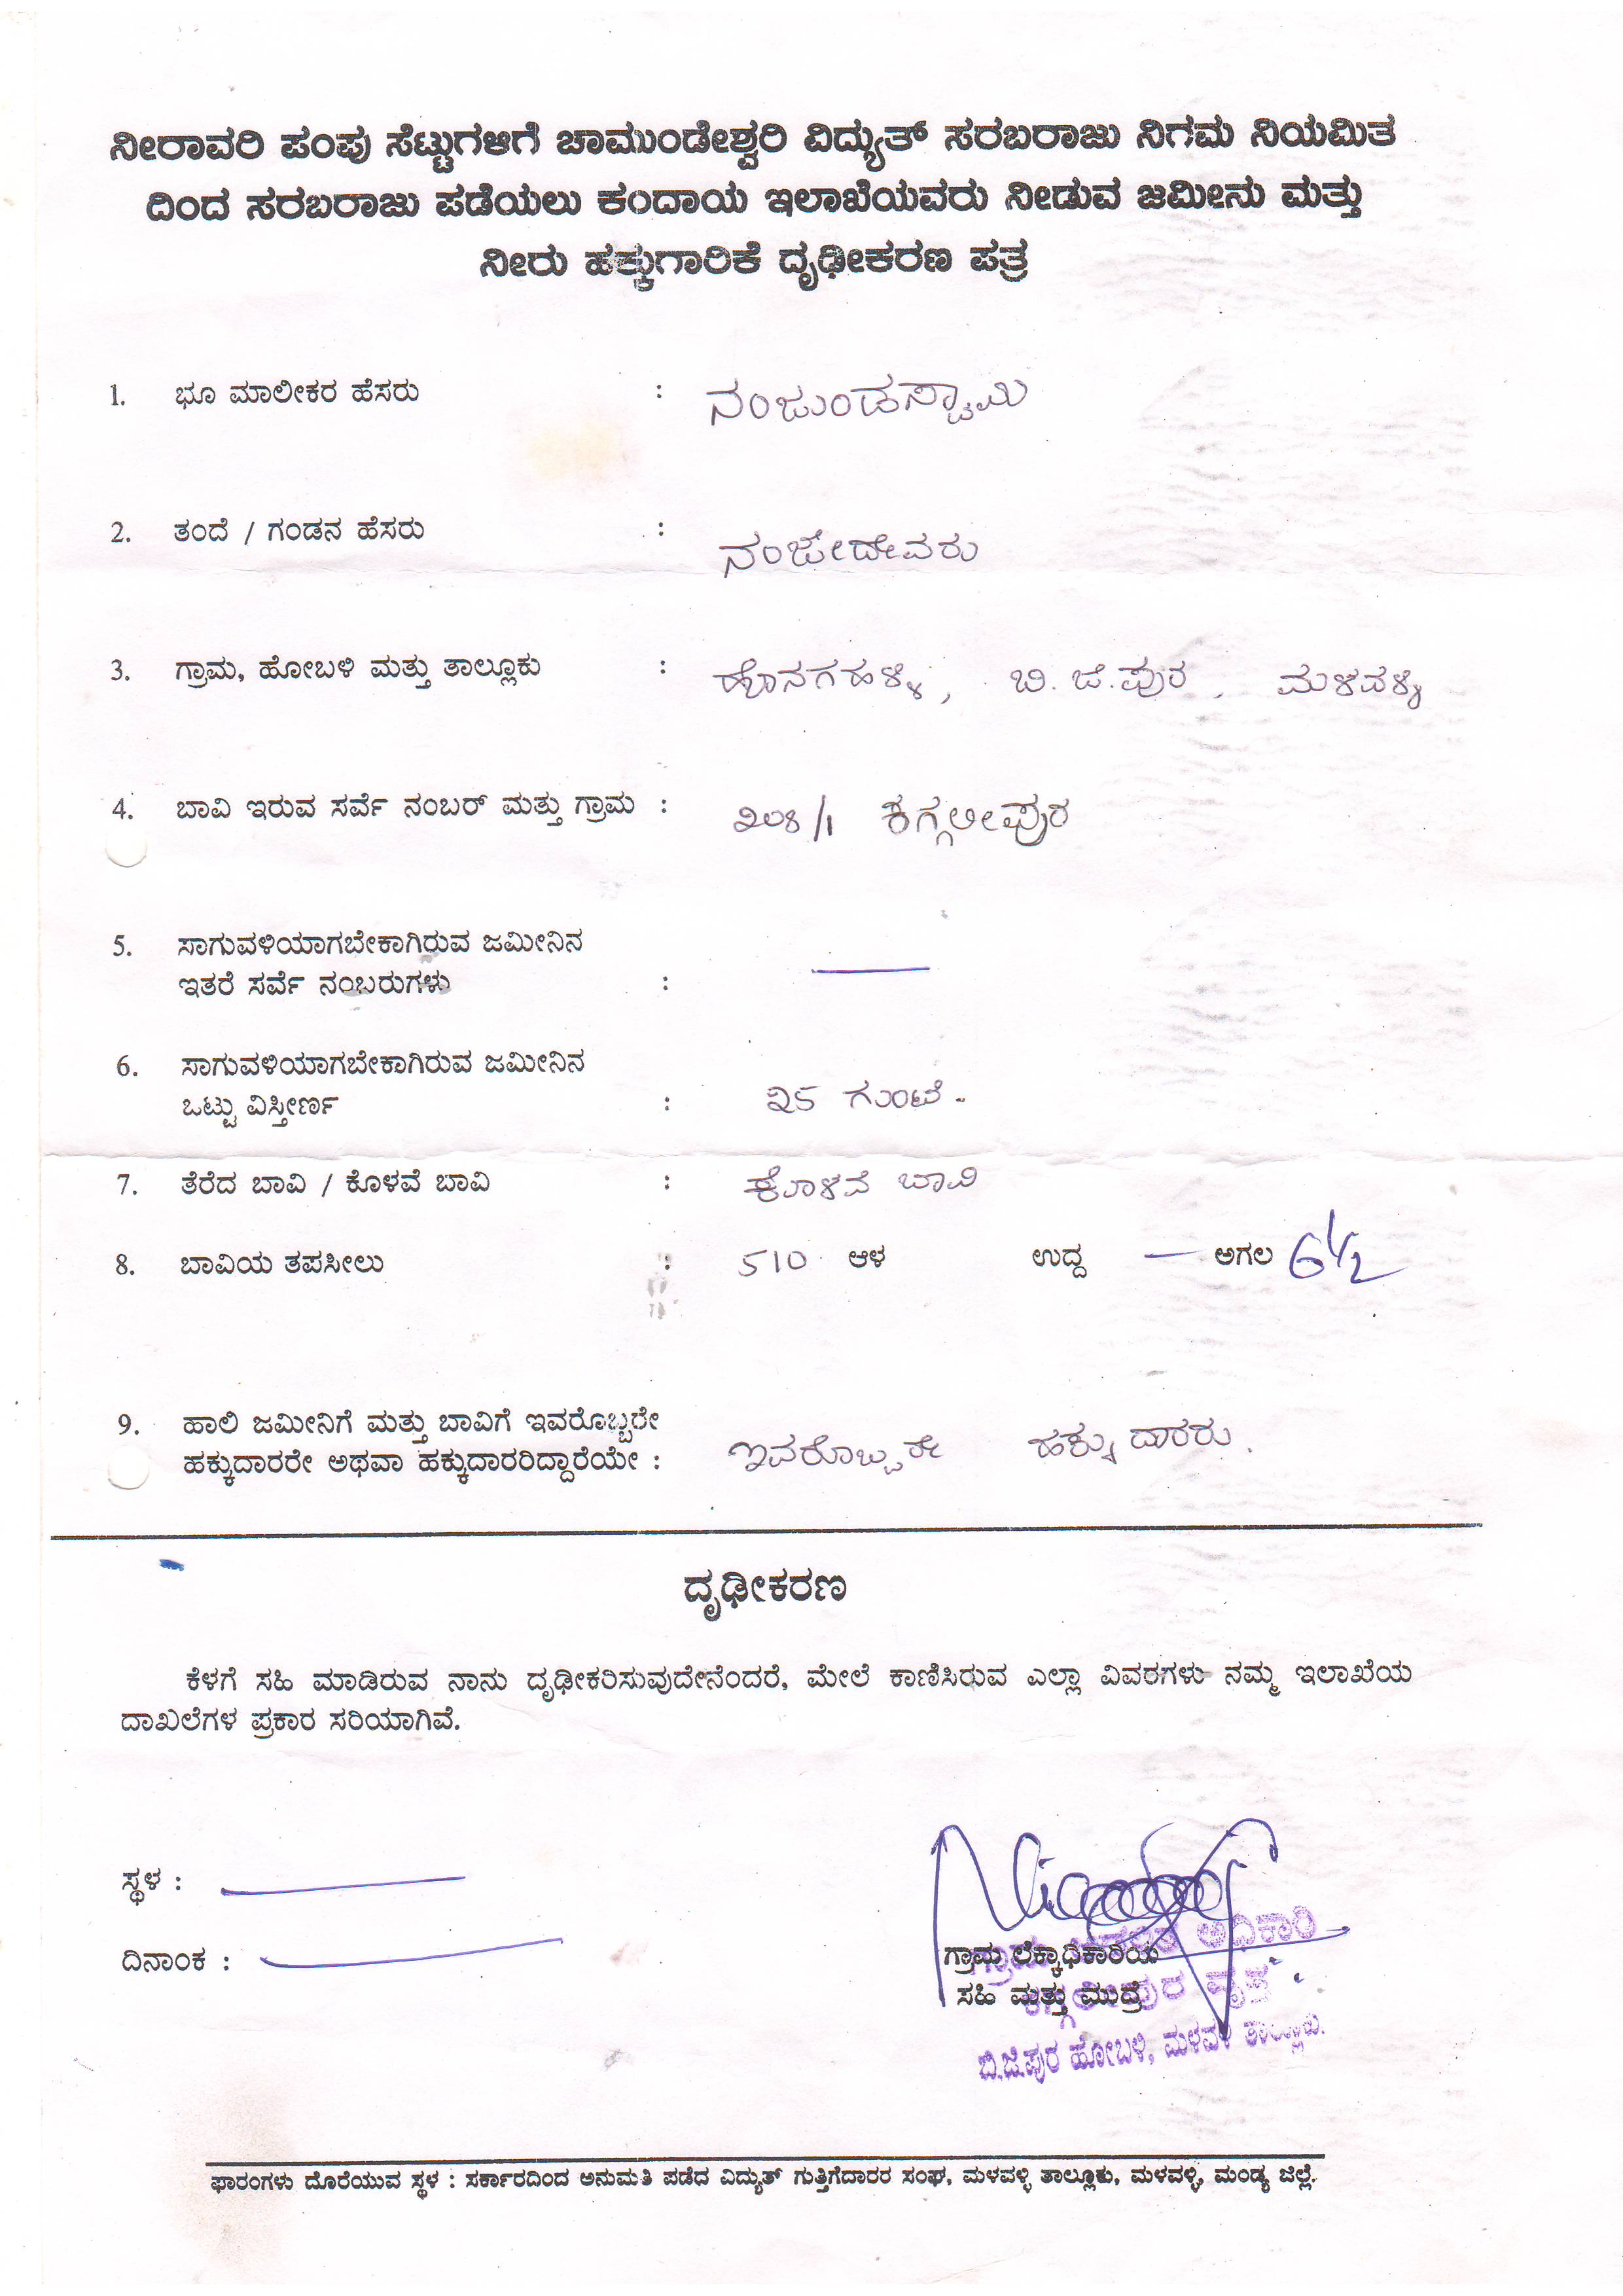 ನೀರಾವರಿ ಪಂಪು ಸೆಟ್ಟುಗಳಿಗೆ ಚಾಮುಂಡೇಶ್ವರಿ ವಿದ್ಯುತ್ ಸರಬರಾಜು ನಿಗಮ ನಿಯಮಿತ
ದಿಂದ ಸರಬರಾಜು ಪಡೆಯಲು ಕಂದಾಯ ಇಲಾಖೆಯವರು ನೀಡುವ ಜಮೀನು ಮತ್ತು
ನೀರು ಹಕ್ಕುಗಾರಿಕೆ ದೃಢೀಕರಣ ಪತ್ರ
1. ಭೂ ಮಾಲೀಕರ ಹೆಸರು : ನಂಜುಂಡಸ್ವಾಮಿ
2. ತಂದೆ / ಗಂಡನ ಹೆಸರು : ನಂಜೇದೇವರು
3. ಗ್ರಾಮ, ಹೋಬಳಿ ಮತ್ತು ತಾಲ್ಲೂಕು : ಹೊನಗಹಳ್ಳಿ, ಬಿ.ಜಿ.ಪುರ, ಮಳವಳ್ಳಿ
4. ಬಾವಿ ಇರುವ ಸರ್ವೆ ನಂಬರ್ ಮತ್ತು ಗ್ರಾಮ : ೨೦೪/1 ಕಗ್ಗಲೀಪುರ
5. ಸಾಗುವಳಿಯಾಗಬೇಕಾಗಿರುವ ಜಮೀನಿನ
ಇತರೆ ಸರ್ವೆ ನಂಬರುಗಳು :
6. ಸಾಗುವಳಿಯಾಗಬೇಕಾಗಿರುವ ಜಮೀನಿನ
ಒಟ್ಟು ವಿಸ್ತೀರ್ಣ : ೩೮ ಗುಂಟೆ -
7. ತೆರೆದ ಬಾವಿ / ಕೊಳವೆ ಬಾವಿ : ಕೊಳವೆ ಬಾವಿ
8. ಬಾವಿಯ ತಪಸೀಲು : 510 ಆಳ ಉದ್ದ — ಅಗಲ 6½
9. ಹಾಲಿ ಜಮೀನಿಗೆ ಮತ್ತು ಬಾವಿಗೆ ಇವರೊಬ್ಬರೇ
ಹಕ್ಕುದಾರರೇ ಅಥವಾ ಹಕ್ಕುದಾರರಿದ್ದಾರೆಯೇ : ಇವರೊಬ್ಬರೇ ಹಕ್ಕುದಾರರು.
ದೃಢೀಕರಣ
ಕೆಳಗೆ ಸಹಿ ಮಾಡಿರುವ ನಾನು ದೃಢೀಕರಿಸುವುದೇನೆಂದರೆ, ಮೇಲೆ ಕಾಣಿಸಿರುವ ಎಲ್ಲಾ ವಿವರಗಳು ನಮ್ಮ ಇಲಾಖೆಯ
ದಾಖಲೆಗಳ ಪ್ರಕಾರ ಸರಿಯಾಗಿವೆ.
ಸ್ಥಳ :
ದಿನಾಂಕ :
ಗ್ರಾಮ ಲೆಕ್ಕಾಧಿಕಾರಿಯ
ಸಹಿ ಮತ್ತು ಮುದ್ರೆ
ಅಧಿಕಾರಿ
ಬಿ.ಜಿ.ಪುರ ಹೋಬಳಿ, ಮಳವಳ್ಳಿ ತಾಲ್ಲೂಕು.
ಫಾರಂಗಳು ದೊರೆಯುವ ಸ್ಥಳ : ಸರ್ಕಾರದಿಂದ ಅನುಮತಿ ಪಡೆದ ವಿದ್ಯುತ್ ಗುತ್ತಿಗೆದಾರರ ಸಂಘ, ಮಳವಳ್ಳಿ ತಾಲ್ಲೂಕು, ಮಳವಳ್ಳಿ, ಮಂಡ್ಯ ಜಿಲ್ಲೆ.